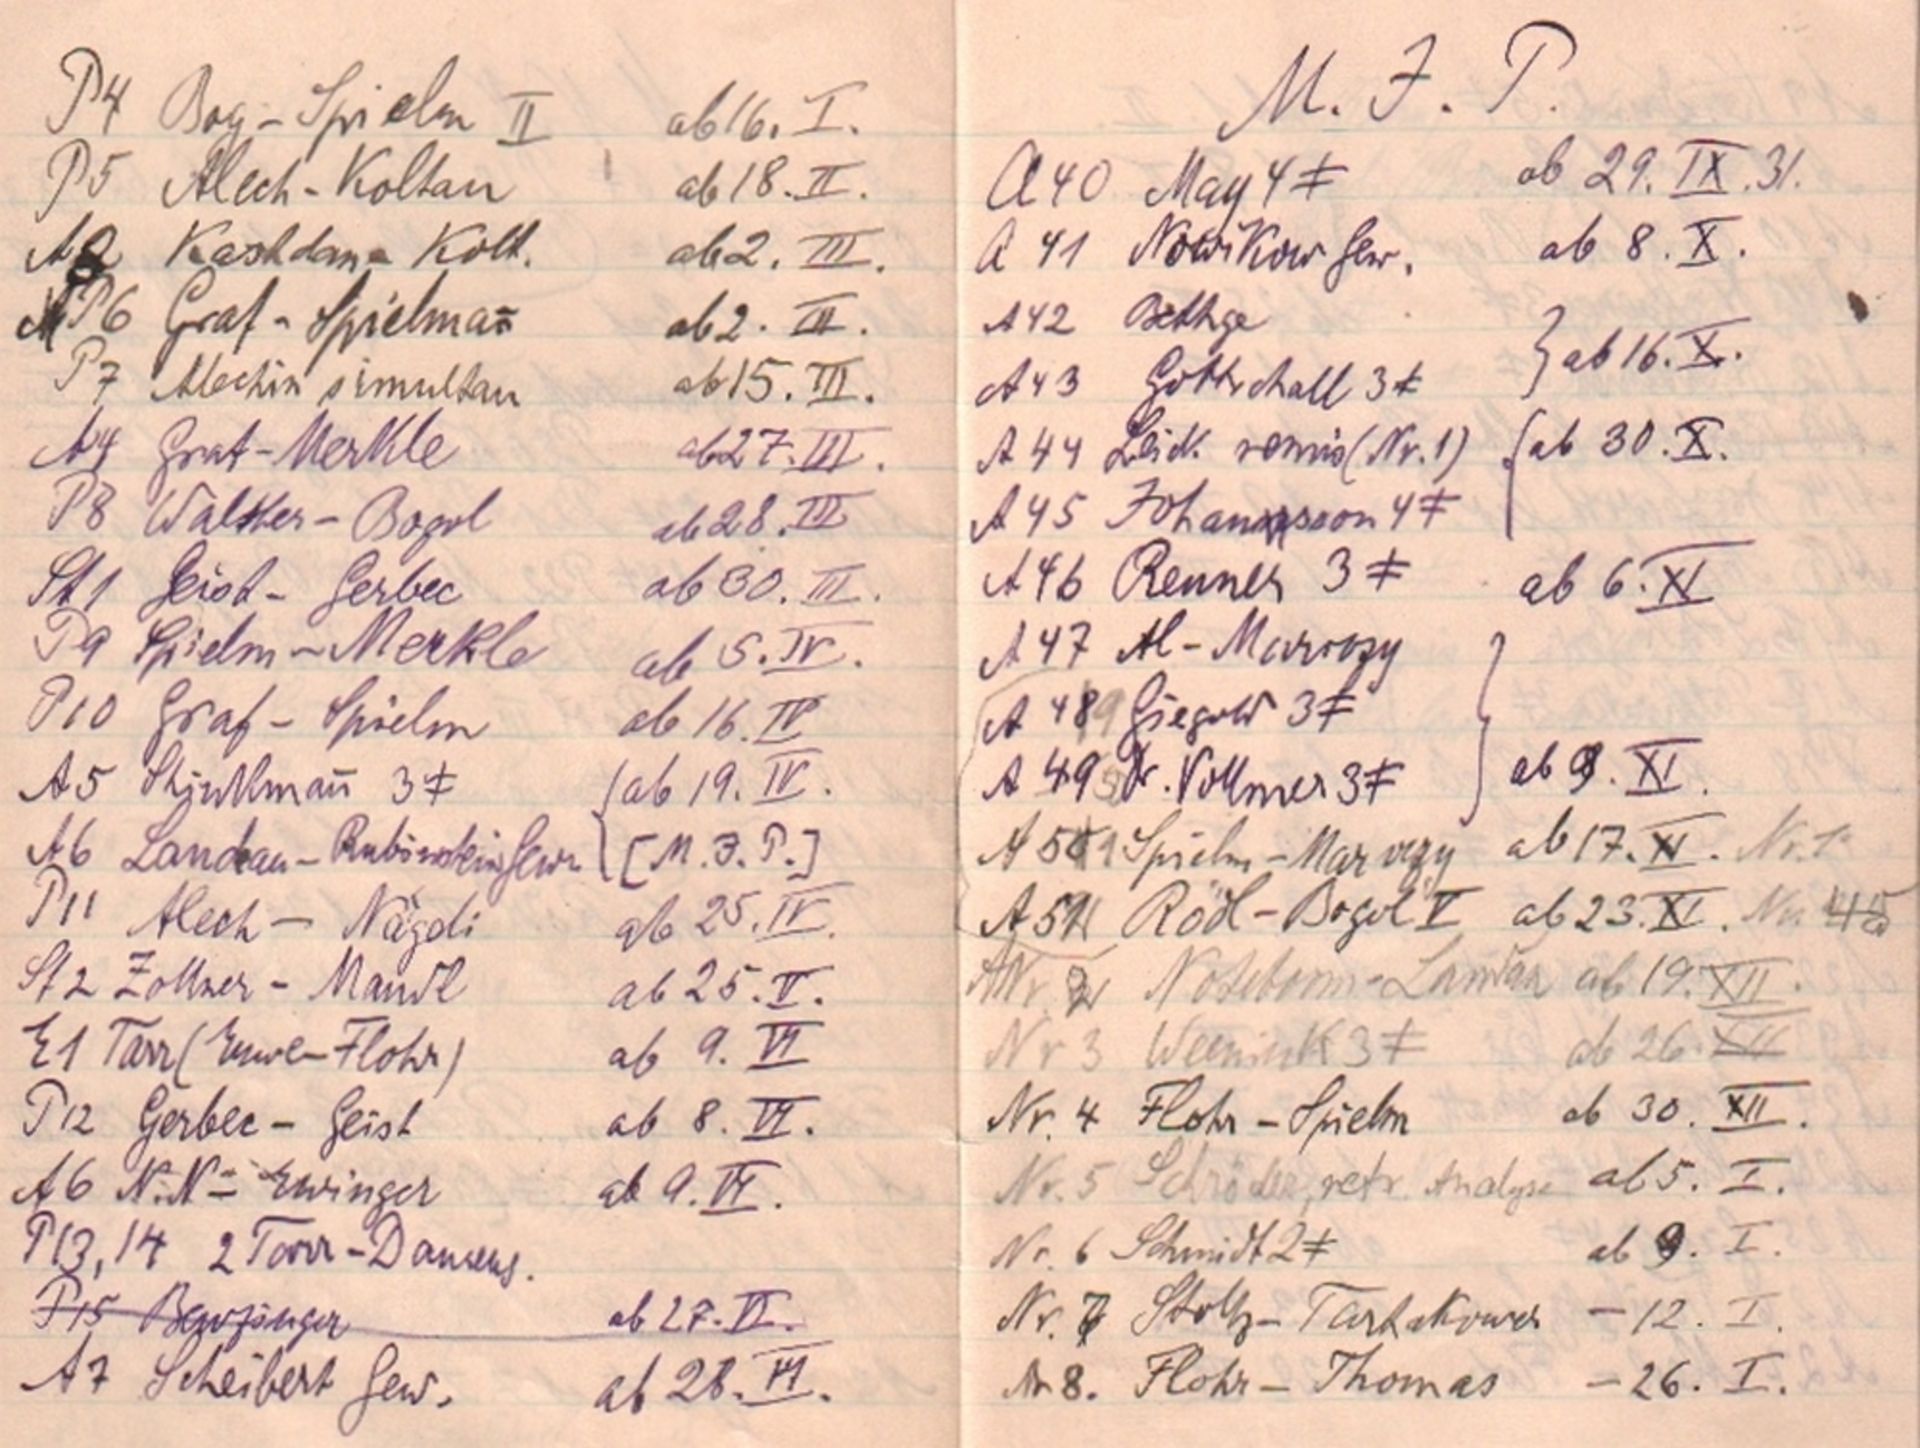 P4 Bog - Spielm II ab 16. I.
P5 Alech - Koltan ab 18. II.
A2 Kashdan - Kolt. ab 2. III.
P6 Graf - Spielmañ ab 2. III.
P7 Alechin simultan ab 15. III.
A4 Graf - Merkle ab 27. III.
P8 Walther - Bogol ab 28. III
St 1 Geist - Gerbec ab 30. III.
P9 Spielm - Merkle ab 5. IV.
P10 Graf - Spielm ab 16. IV
A5 3 ‡ ab 19. IV.
A6 Landau - Rubinstein Gew. [M. J. P.]
P11 Alech - Nägeli ab 25. IV.
St 2 Zollner - Mandl ab 25. V.
E1 Tarr (Euwe - Flohr) ab 9. VI
P12 Gerbec - Geist ab 8. VI.
A6 N.N - Ewinger ab 9. VI.
P13, 14 2 Torr -
P15 ab 27. VI.
A7 Scheibert Gew. ab 28. VI.
M. J. P.
A 40 May 4 ‡ ab 29. IX. 31.
A 41 Nowikow Gew. ab 8. X.
A 42 Bethge
A 43 Gottschall 3 ‡ ab 16. X.
A 44 remis (Nr. 1) ab 30. X.
A 45 Johansson 4 ‡
A 46 Renner 3 ‡ ab 6. XI
A 47 Al - Maroczy
A 48 Giegold 3 ‡
A 49 Dr. Vollmer 3 ‡ ab 9. XI.
A 50 Spielm - Maroczy ab 17. XI. Nr. 1
A 51 Rödl - Bogol V ab 23. XI.
Nr. 2 Noteboom - Landau ab 19. XII.
Nr 3 Weenink 3 ‡ ab 26. XII
Nr. 4 Flohr - Spielm ab 30. XII.
Nr. 5 Schröder, retr. Analyse ab 5. I.
Nr. 6 Schmidt 2 ‡ ab 9. I.
Nr. 7 Stoltz - Tartakower - 12. I.
Nr 8. Flohr - Thomas - 26. I.